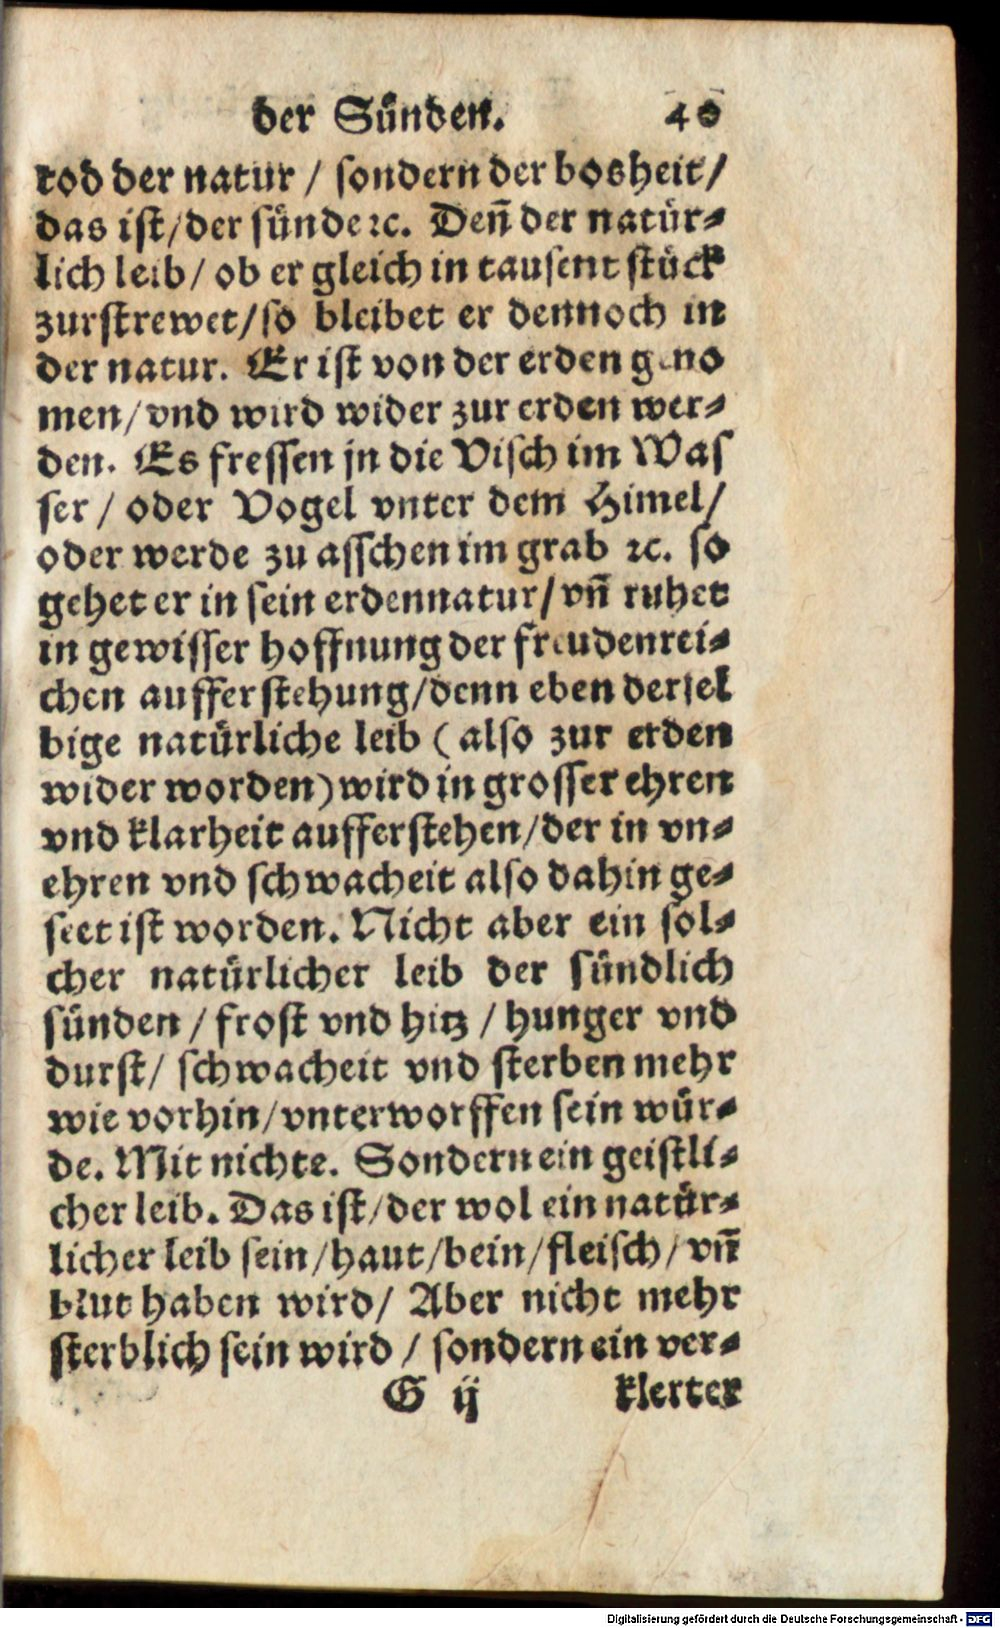 der Sünden. 40
tod der natur / sondern der bosheit/
das ist/der sünde ꝛc. Deñ der natür⸗
lich leib/ ob er gleich in tausent stück
zurstrewet/so bleibet er dennoch in
der natur. Er ist von der erden geno
men/vnd wird wider zur erden wer⸗
den. Es fressen jn die Visch im Was
ser / oder Vogel vnter dem Himel/
oder werde zu asschen im grab ꝛc. so
gehet er in sein erdennatur/vñ ruhet
in gewisser hoffnung der freudenrei⸗
chen aufferstehung/denn eben dersel
bige natürliche leib (also zur erden
wider worden)wird in grosser ehren
vnd klarheit aufferstehen/der in vn⸗
ehren vnd schwacheit also dahin ge⸗
seet ist worden. Nicht aber ein sol⸗
cher natürlicher leib der sündlich
sünden / frost vnd hitz / hunger vnd
durst/ schwacheit vnd sterben mehr
wie vorhin/vnterworffen sein wür⸗
de. Mit nichte. Sondern ein geistli⸗
cher leib. Das ist/der wol ein natür⸗
licher leib sein/haut/bein/fleisch/vñ
blut haben wird/ Aber nicht mehr
sterblich sein wird / sondern ein ver⸗
G ij klerter
Digitalisierung gefördert durch die Deutsche Forschungsgemeinschaft - DFG